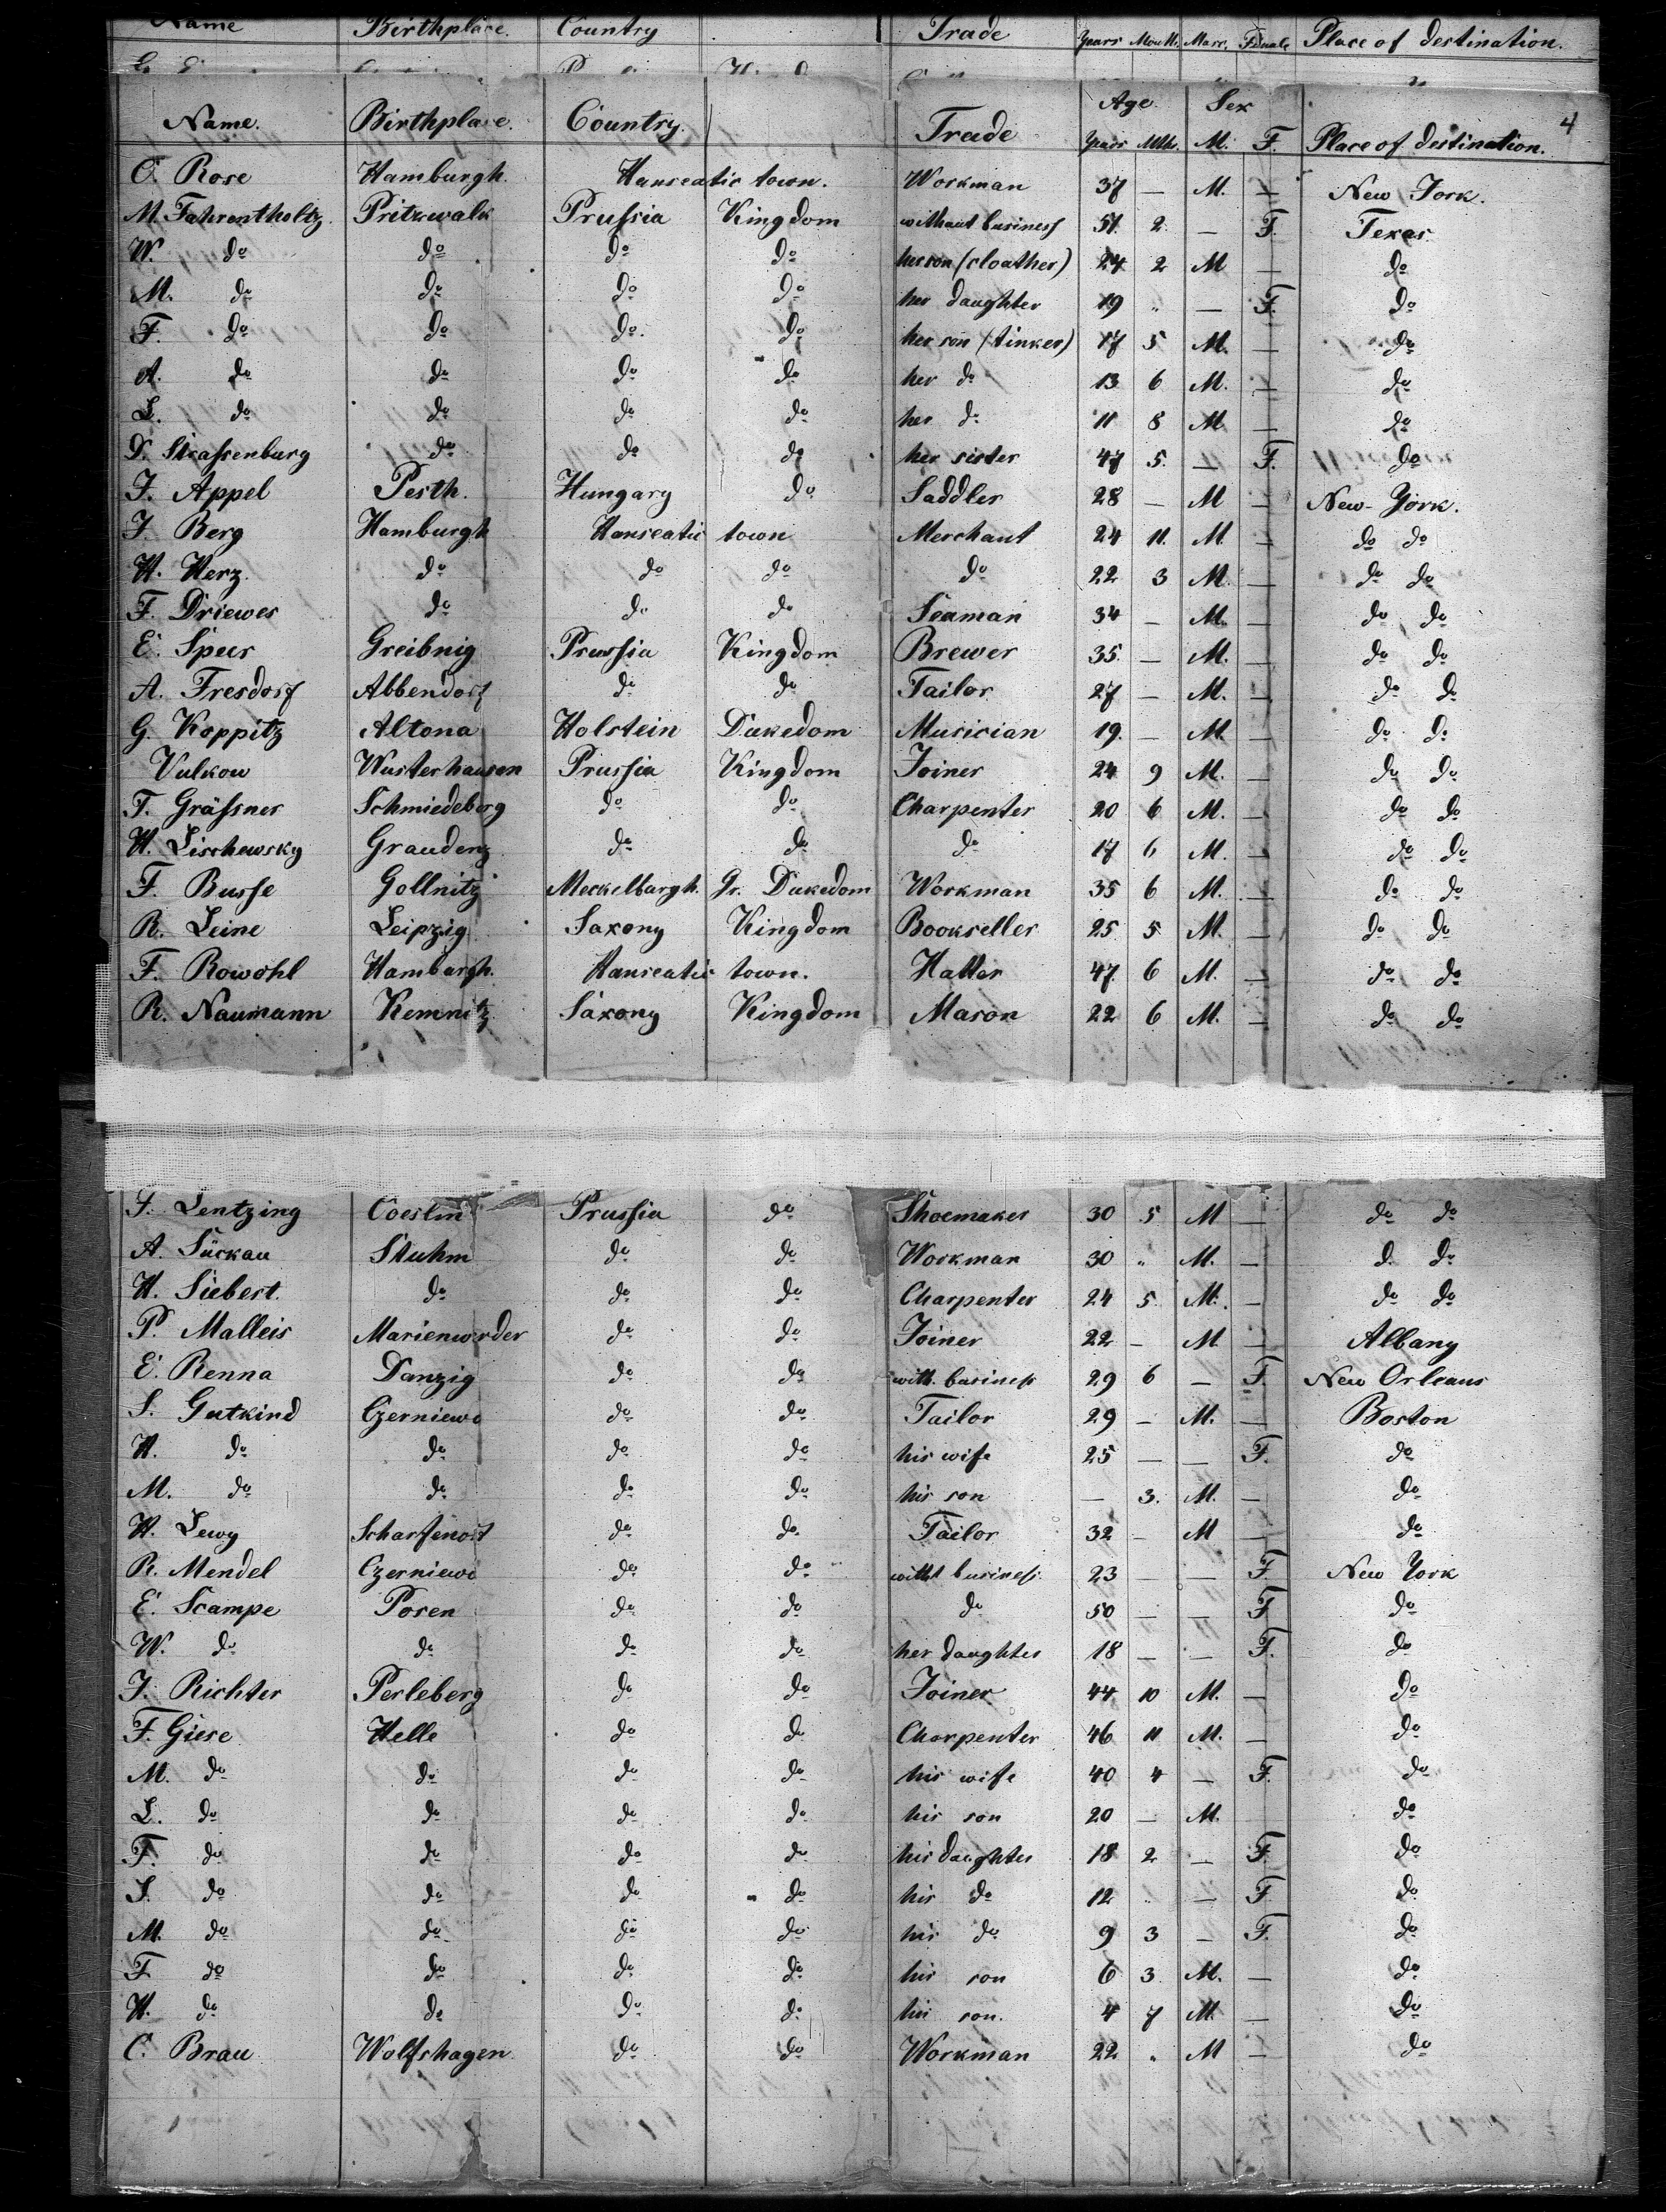 Name Birthplace. Country Trade Years Month. Masc. Female Place of destination.
4
Age Sex
Name. Birthplace. Country. Trade Years Mths. M. F. Place of destination.
C. Rose Hamburgh. Hanseatic town. Workman 37 — M. — New York.
M. Fahrentholtz. Pritzwalk Prussia Kingdom without business 51. 2. — F. Texas
W. do do do do her son (cloather) 24 2 M — do
M. do do do do her daughter 19 " — F. do
F. do do do. do her son (tinker) 17 5 M. — do
A. do do do do her do 13 6 M. — do
L. do do do do her do 11 8 M — do
D. Strassenburg do do do her sister 47 5. — F. do
J. Appel Pesth. Hungary do Saddler 28 — M — New-York.
J. Berg Hamburgh Hanseatic town Merchant 24 11. M. — do do
H. Herz. do do do do 22 3 M. — do do
F. Driewes do do do Seaman 34 — M. — do do
E. Speer Greibnig Prussia Kingdom Brewer 35. — M. — do do
A. Fresdorf Abbendorf do do Tailor 27 — M. — do do
G. Koppitz Altona Holstein Dukedom Musician 19. — M. — do do
Vulkow Wusterhausen Prussia Kingdom Joiner 24 9 M. — do do
T. Grässner Schmiedeberg do do Charpenter 20 6 M. — do do
H. Lischewsky Graudenz do do do 17 6 M. — do do
F. Busse Gollnitz Meckelburgh. Gr. Dukedom Workman 35 6 M. — do do
R. Leine Leipzig Saxony Kingdom Bookseller 25 5 M. — do do
F. Rowohl Hamburgh. Hanseatic town. Hatter 47. 6 M. — do do
R. Naumann Kemnitz Saxony Kingdom Mason 22 6 M. — do do
S. Lentzing Coeslin Prussia do Shoemaker 30 5 M — do do
A. Sückau Stuhm do do Workman 30 " M. — do do
H. Siebert. do do do Charpenter 24 5. M. — do do
P. Malleis Marienwerder do do Joiner 22 — M. — Albany
E. Renna Danzig do do with. business 29 6 — F. New Orleans
S. Gutkind Czerniewo do do Tailor 29 — M. — Boston
H. do do do do his wife 25 — — F. do
M. do do do do his son — 3. M. — do
H. Lewy Scharfenort do do Tailor 32 — M — do
R. Mendel Czerniewo do do witht business. 23 — — F. New York
E. Scampe Posen do do do 50 — — F do
W. do do do do her daughter 18 — — F. do
J. Richter Perleberg do do Joiner 44 10 M. — do
F. Giese Helle do do Charpenter 46 11 M. — do
M. do do do do his wife 40 4 — F. do
L. do do do do his son 20 — M. do
F. do do do do his daughter 18 2 — F. do
S. do do do do his do 12 " — F. do
M. do do do do his do 9 3 — F. do
F do do do do his son 6 3. M. — do
H. do do do do his son. 4 7 M. — do
C. Brau Wolfshagen. do do Workman 22 " M — do